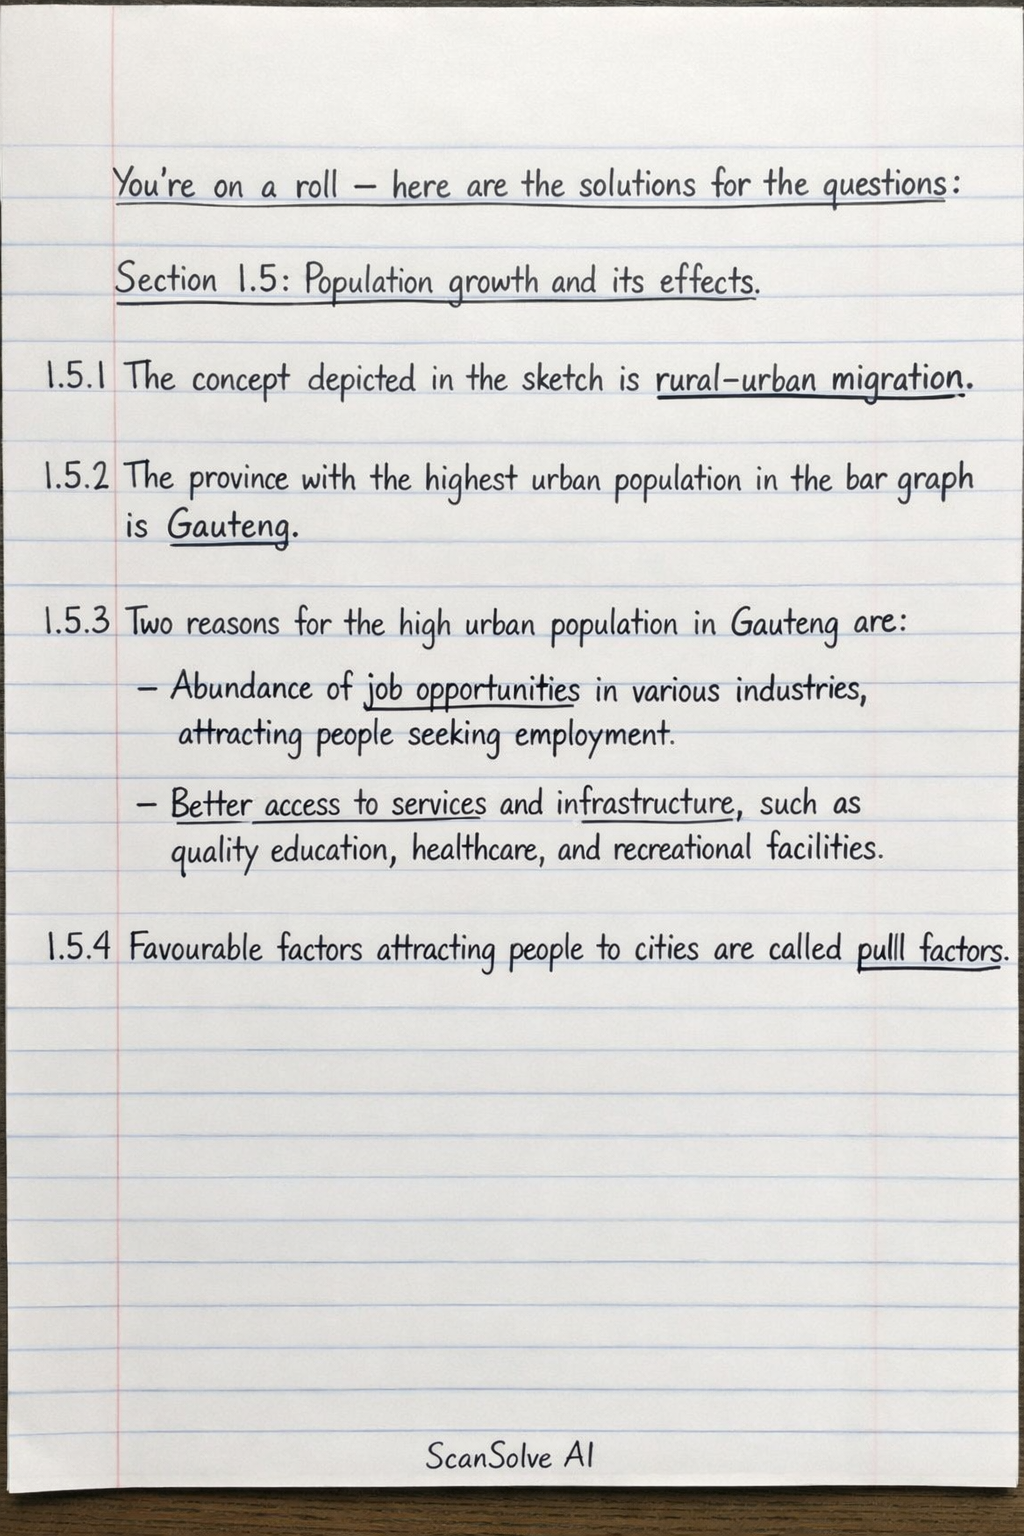 You're on a roll – here are the solutions for the questions:
Section 1.5: Population growth and its effects.
1.5.1 The concept depicted in the sketch is rural-urban migration.
1.5.2 The province with the highest urban population in the bar graph
is Gauteng.
1.5.3 Two reasons for the high urban population in Gauteng are:
– Abundance of job opportunities in various industries,
attracting people seeking employment.
– Better access to services and infrastructure, such as
quality education, healthcare, and recreational facilities.
1.5.4 Favourable factors attracting people to cities are called pulll factors.
ScanSolve AI